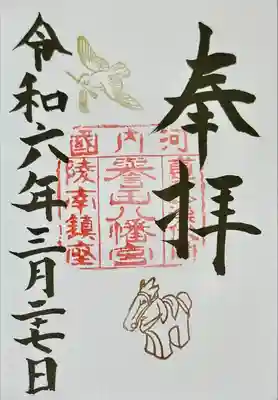 奉拝
河内國
誉田八幡宮
陵南鎮座
令和六年三月二十七日